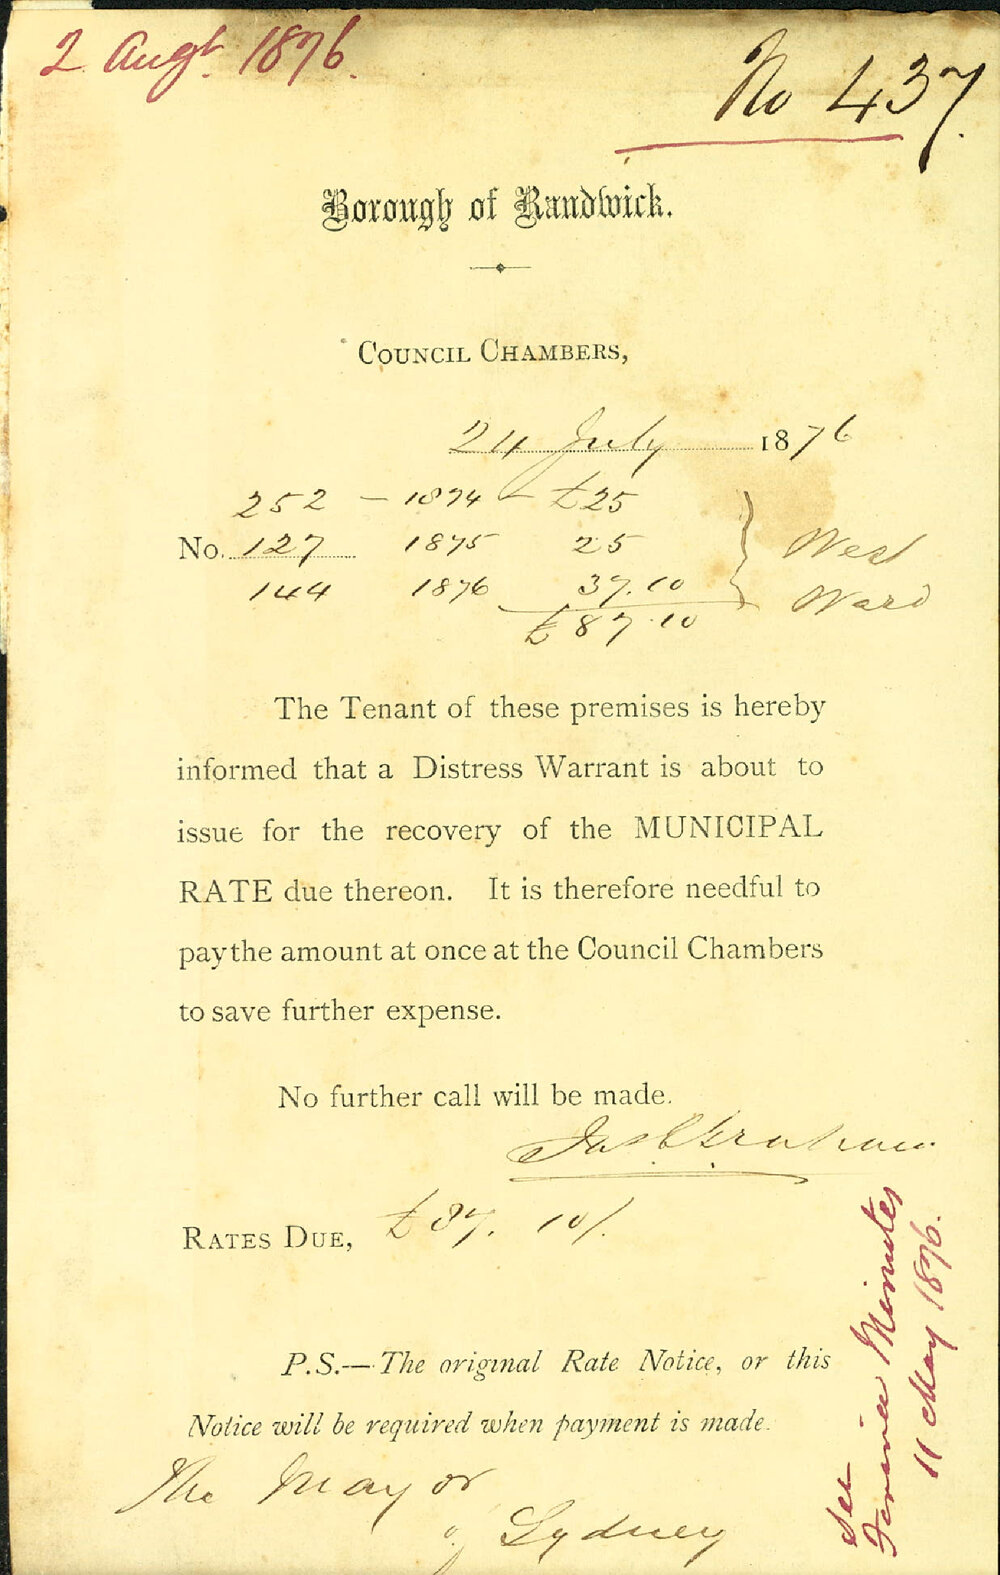 2 Augt. 1876.
No 437.
Borough of Randwick.
COUNCIL CHAMBERS,
24 July 1876
252 – 1874 – £25
No. 127 1875 25
144 1876 37.10
£87.10
West
Ward
The Tenant of these premises is hereby
informed that a Distress Warrant is about to
issue for the recovery of the MUNICIPAL
RATE due thereon. It is therefore needful to
pay the amount at once at the Council Chambers
to save further expense.
No further call will be made.
Jas Graham
RATES DUE, £87. 10/.
See
Finance Minutes
11 May 1876.
P.S.—The original Rate Notice, or this
Notice will be required when payment is made.
The Mayor
of Sydney